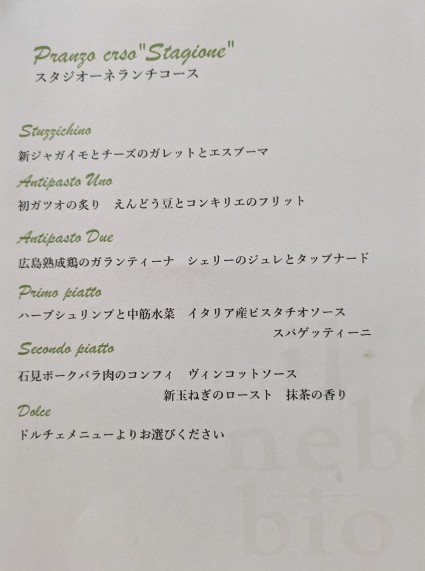 Pranzo crso"Stagione"
スタジオーネランチコース
Stuzzichino
新ジャガイモとチーズのガレットとエスプーマ
Antipasto Uno
初ガツオの炙り　えんどう豆とコンキリエのフリット
Antipasto Due
広島熟成鶏のガランティーナ　シェリーのジュレとタップナード
Primo piatto
ハーブシュリンプと中筋水菜　イタリア産ピスタチオソース
スパゲッティーニ
Secondo piatto
石見ポークバラ肉のコンフィ　ヴィンコットソース
新玉ねぎのロースト　抹茶の香り
Dolce
ドルチェメニューよりお選びください
il
neb
bio